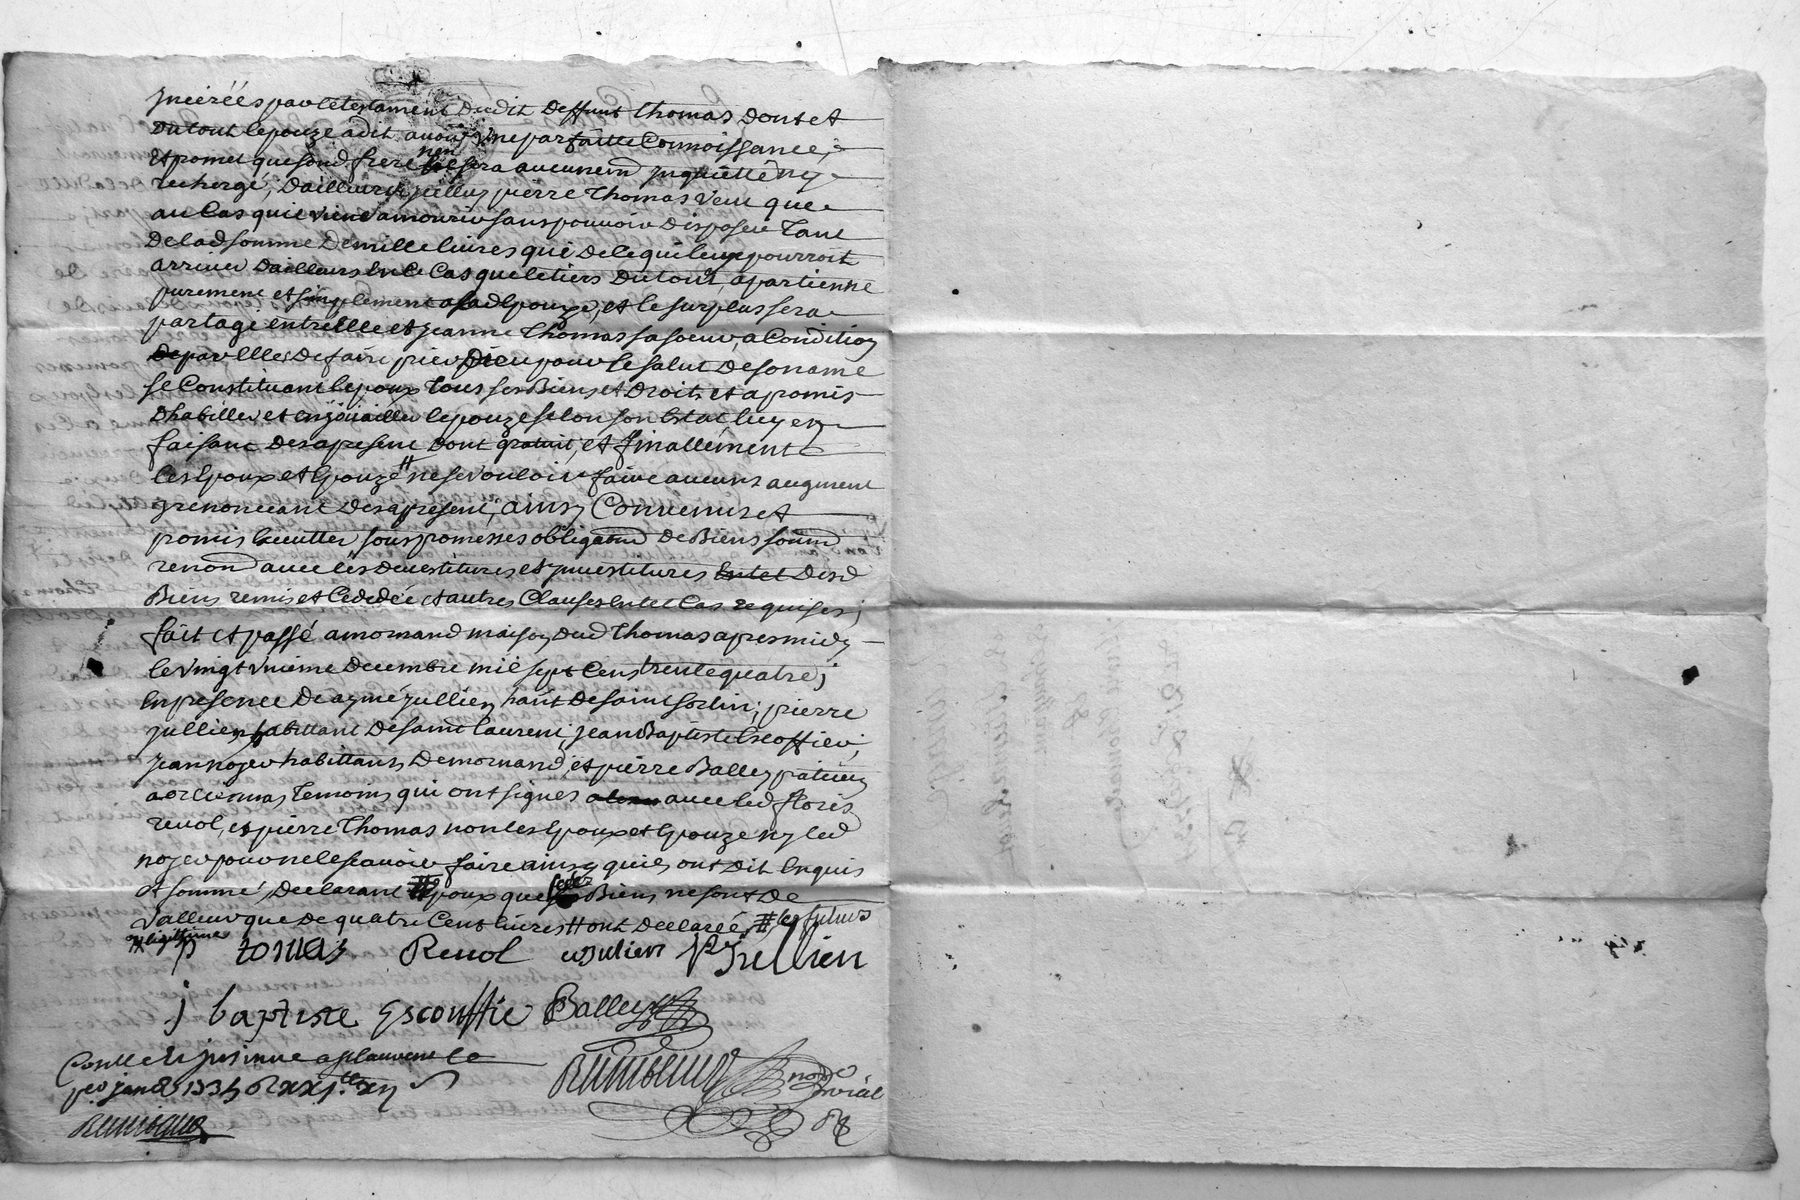 inserées par le testament dudit deffunt thomas dont et
du tout lepouze a dit avoir une parfaitte Connoissance,
et promet que sond frere n'en sera aucunem inquiétté ny
recherge, D'ailleurs icelluy pierre Thomas veut que
au Cas qu'il viene a mourir sans pouvoir disposer Tant
de lad somme de mille livres que de ce qui leur pourroit
arriver d'ailleurs En ce Cas que le tiers du tout, apartienne
purement et simplement a sad Epouze, et le surplus sera
partagé entre Elle et jeanne Thomas sa soeur, a Condition
par Elles de faire prier Dieu pour le salut de son ame
se Constituant lepoux tous ses Biens et Droits et a promis
d'habiller et enjoüailler lepouze selon son Estat luy en
faisant des a present dont gratuit, et finallement
les Epoux et Epouze # ne se vouloir faire aucuns augment
y renoncant des a present, ainsy Convenus et
promis executter sous promesses obligaond de Biens soumd
renond avec les devestitures et investitures desd
Biens remis et Cededée et autres Clauses En tel Cas requises;
fait et passé a mornand maison dud Thomas apres midy
le vingt unieme decembre mil sept Cens trente quatre;
En presence de aymé jullien hant de saint sorlin; pierre
jullien habittant de saint laurent, jean Baptiste Escoffier,
jean noyer habittans de mornand, et pierre Balley paticien
a temoins qui ont signés avec led floris
revol, et pierre Thomas non les Epoux et Epouze ny led
noyer pour ne le scavoir faire ainsy qu'ils ont dit Enquis
et sommé, Declarant # Epoux que Biens ne sont de
valleur que de quatre Cent livres # ont declaré # les futurs
# legittime
p tomas Revol a Julien P Jullien
j baptiste Escouffié Balley
Conlle et insinué a st laurent le
per janer 1735
not
Roial